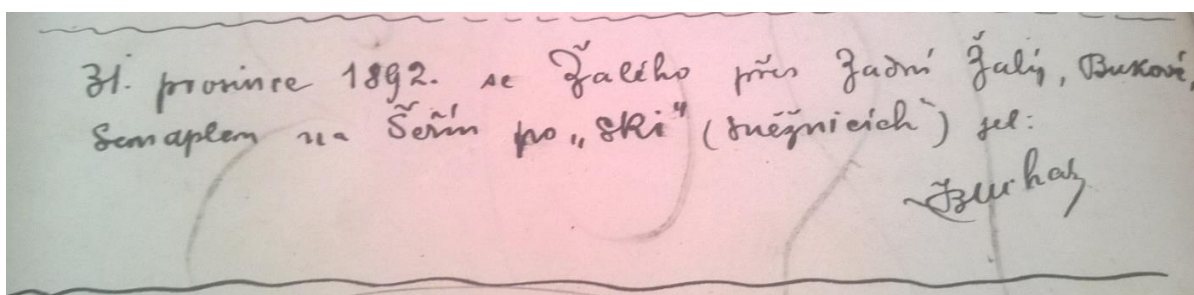 31. prosince 1892. se Žalého přes Zadní Žalý, Bukové,
Semaplem na Šeřín po „ski“ (sněžnicích) jel: